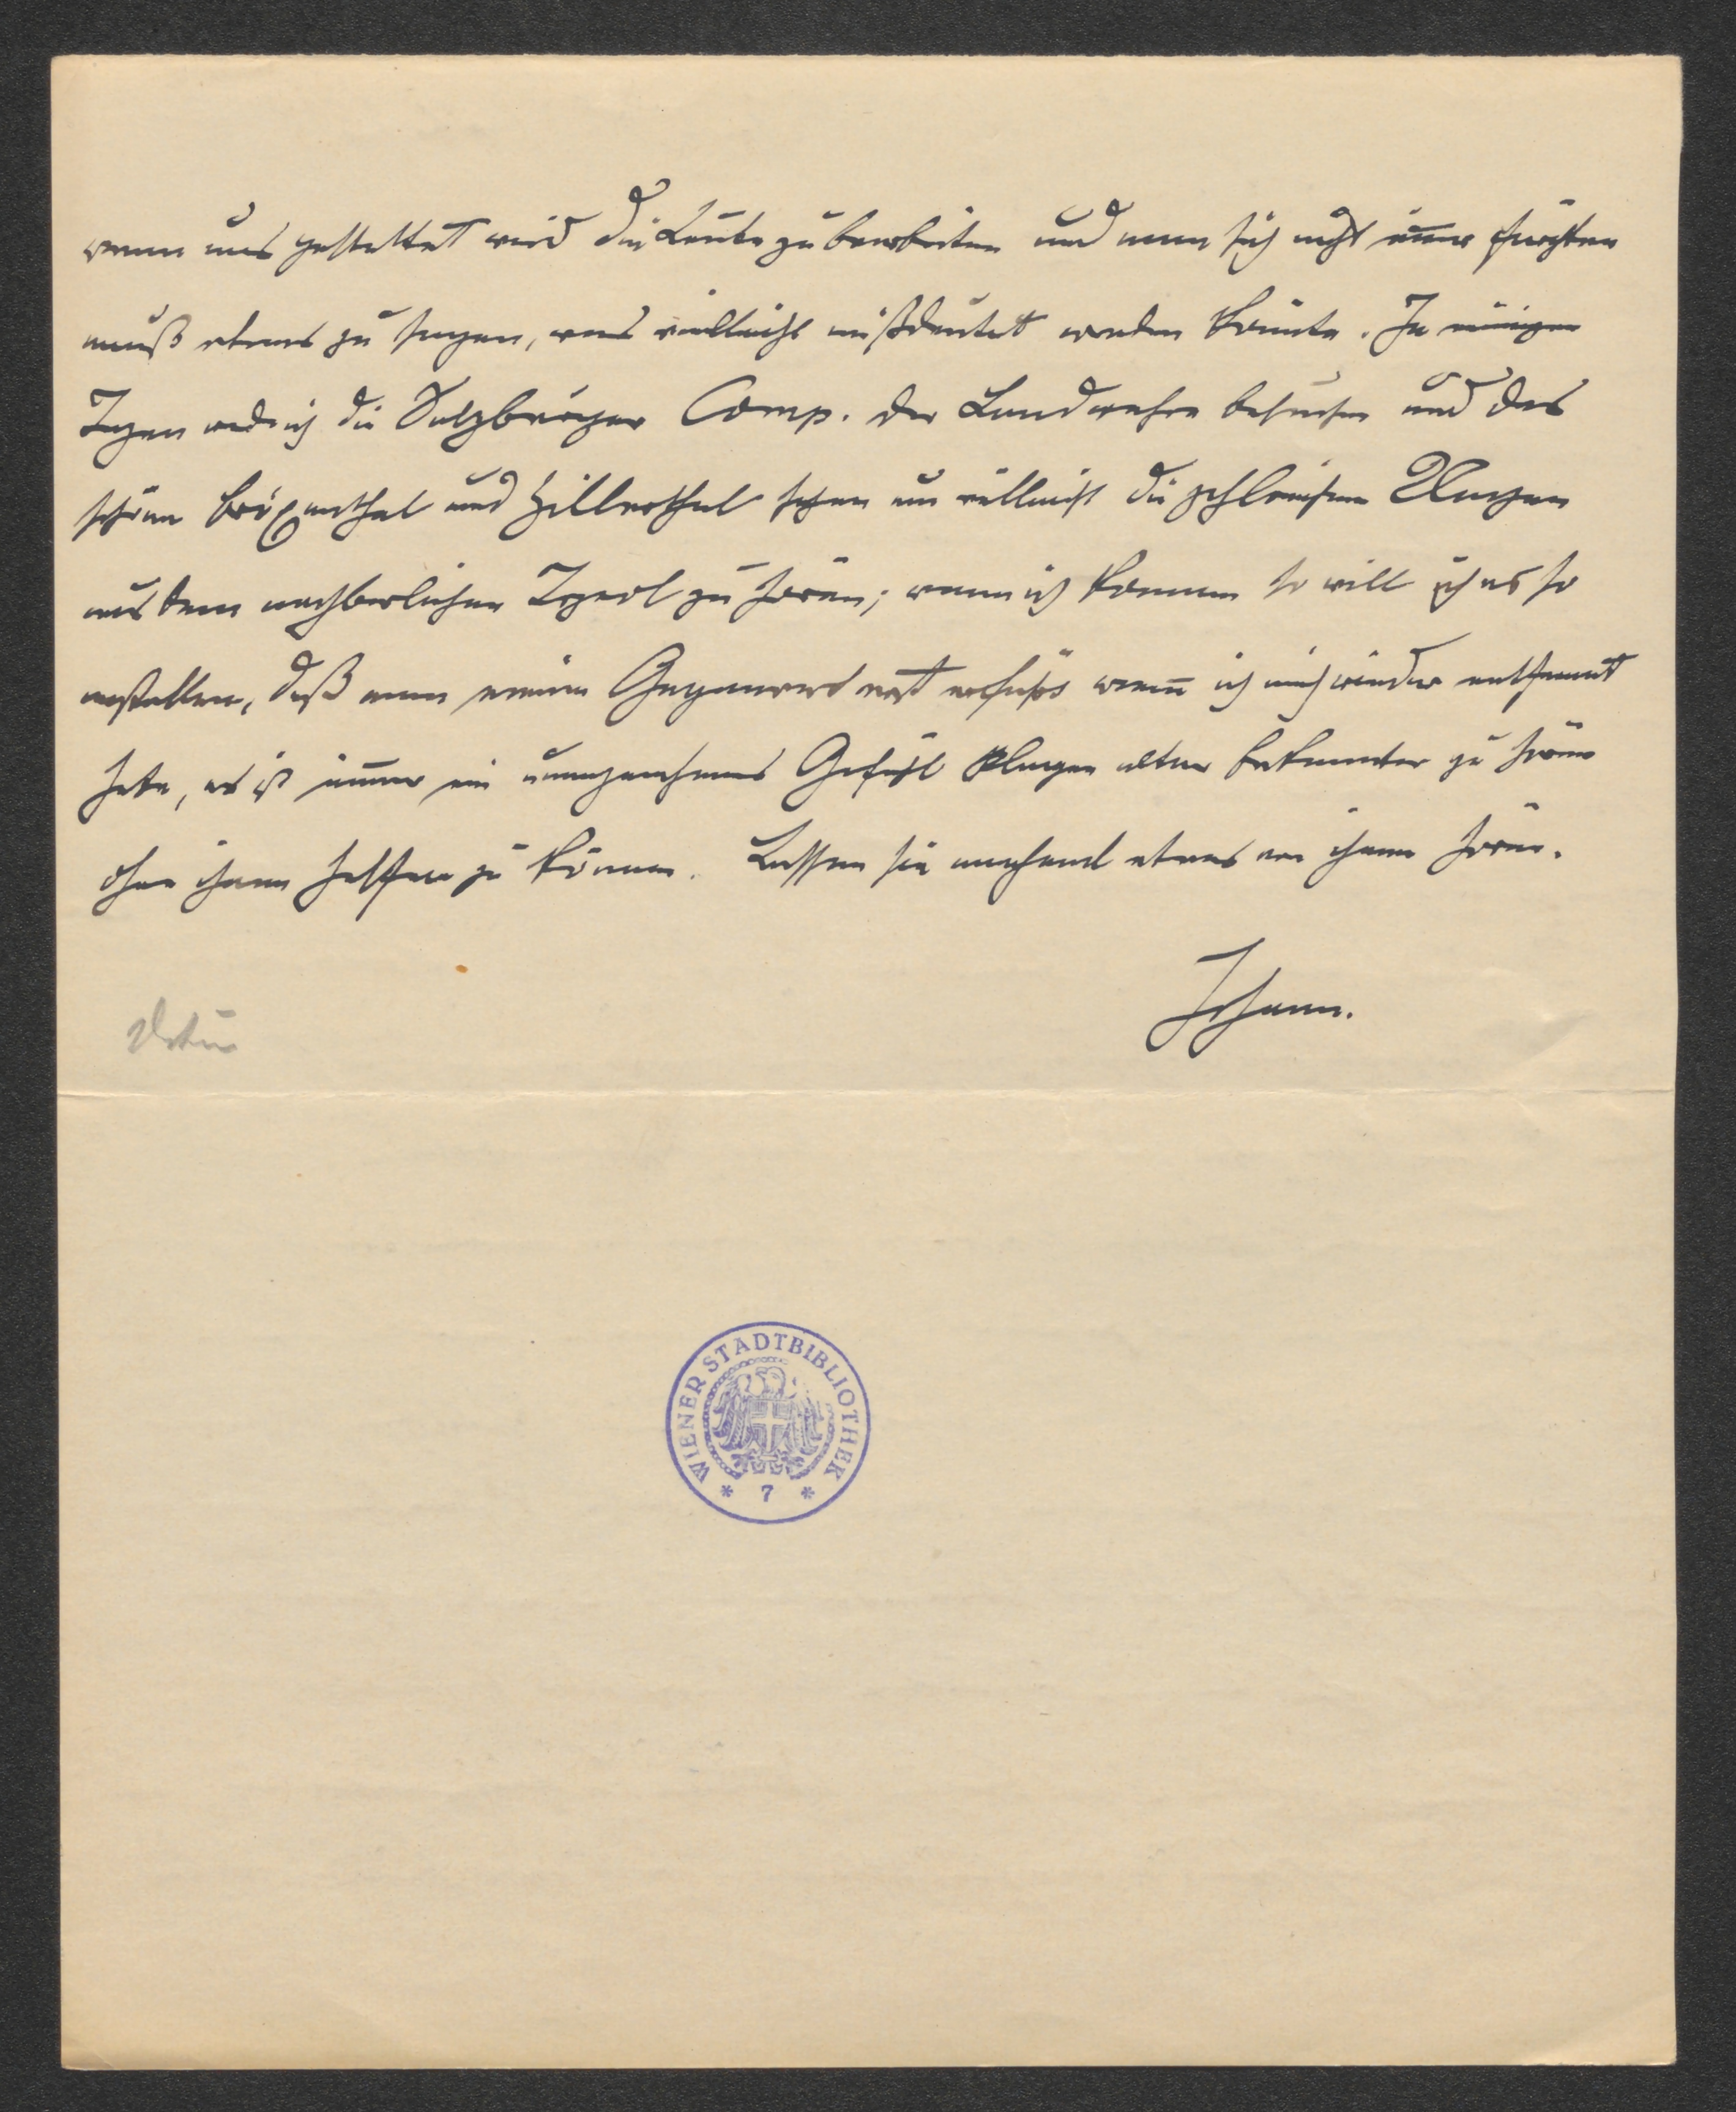 wenn uns gestattet wird die Leute zu bearbeiten und man sich nicht im̄er fürchten
muß etwas zu sagen, was vielleicht mißdeutet werden könnte. In einigen
Tagen werde ich die Salzburger Comp. der Landwehre besuchen und das
schöne Brixenthal und Zillerthal sehen um vielleicht die zahlreichen Klagen
aus dem nachbarlichen Tyrol zu hören; wenn ich komme so will ich es so
anstellen, daß man meine Gegenwart erst erfahrs wen̄ ich mich wieder entfernt
habe, es ist im̄er ein unangenehmes Gefühl Klagen alter Bekannter zu hören
ohne ihnen helffen zu können. Lassen sie machmal etwas von ihnen hören.
Johann.
WIENER STADTBIBLIOTHEK
* 7 *